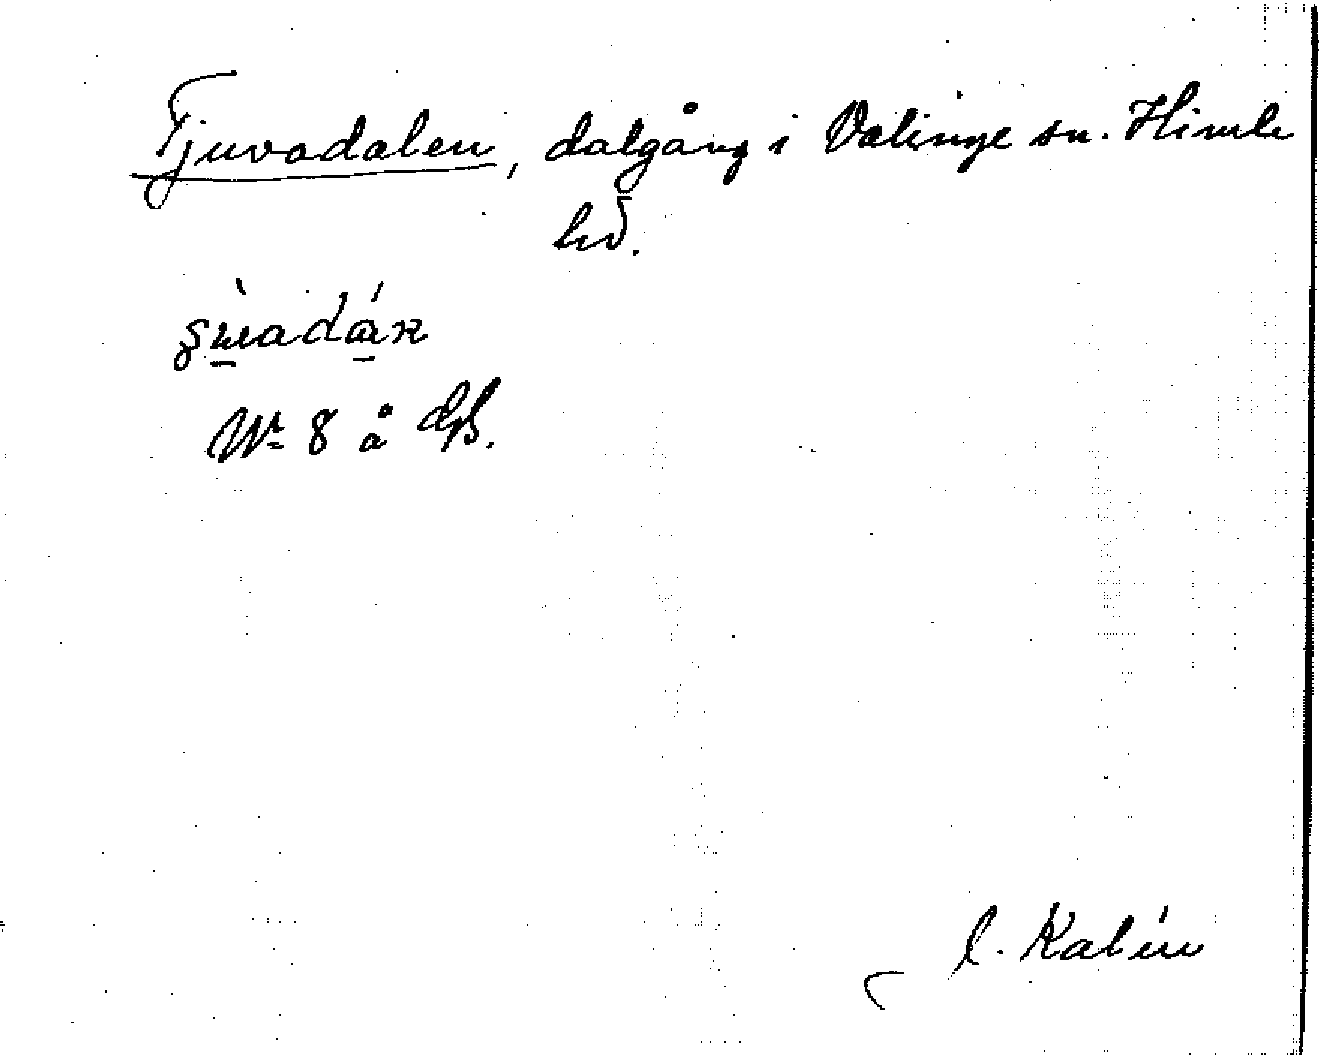 Tjuvadalen, dalgång i Valinge sn. Himle
hd.
Nr 8 å
Kalén